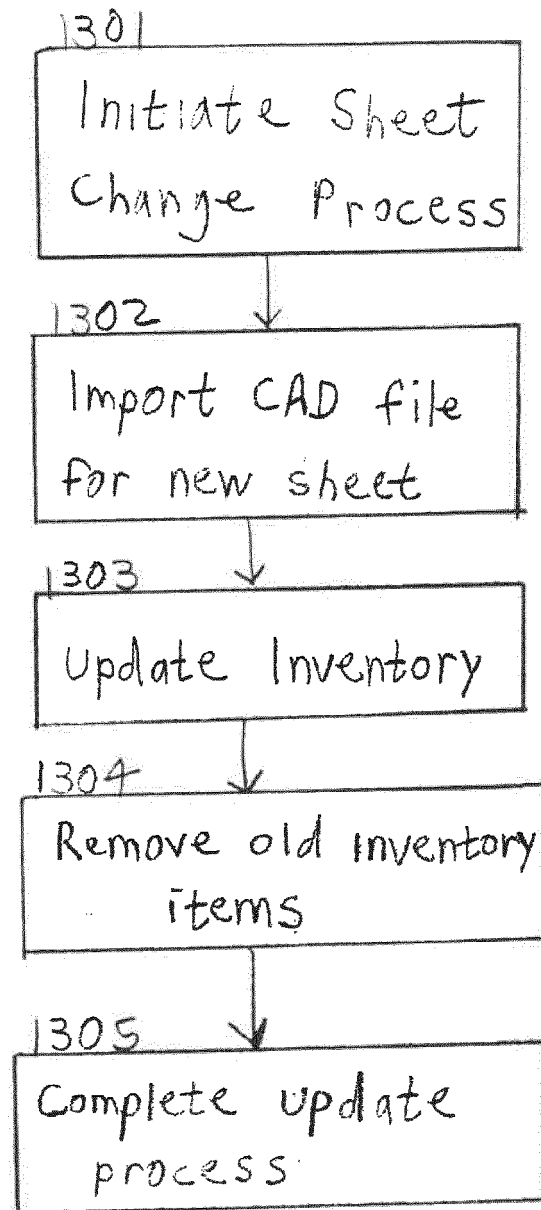 1301
Initiate Sheet
Change Process
1302
Import CAD file
for new sheet
1303
Update Inventory
1304
Remove old inventory
items
1305
Complete update
process